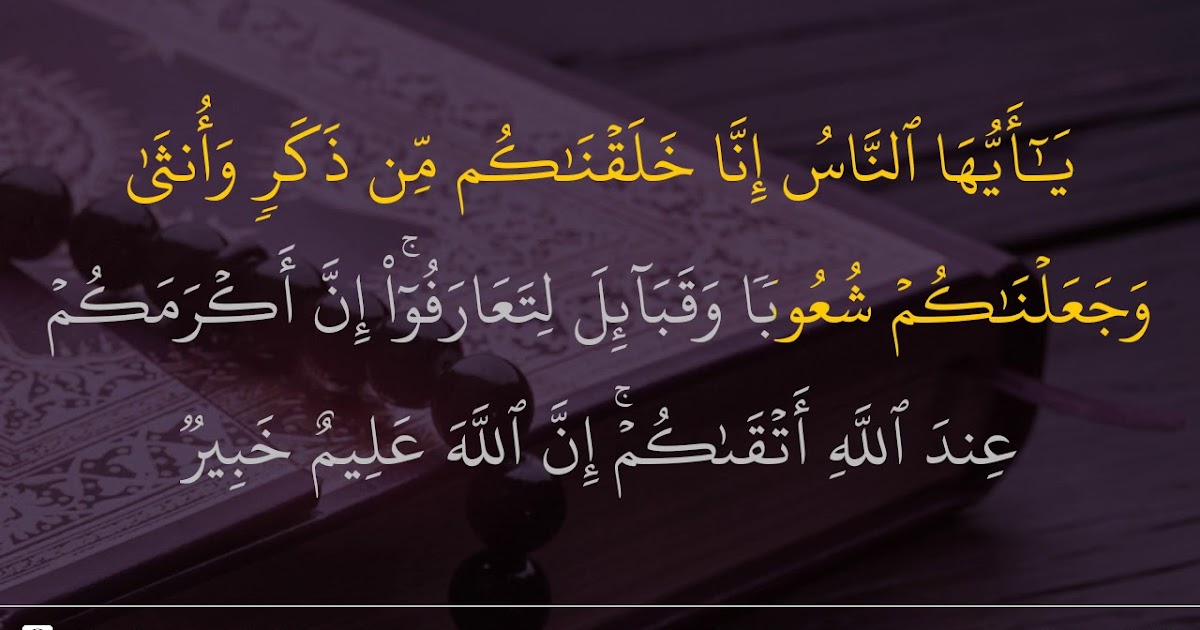 يَـٰٓأَيُّهَا ٱلنَّاسُ إِنَّا خَلَقْنَـٰكُم مِّن ذَكَرٍۢ وَأُنثَىٰ
وَجَعَلْنَـٰكُمْ شُعُوبًۭا وَقَبَآئِلَ لِتَعَارَفُوٓا۟ ۚ إِنَّ أَكْرَمَكُمْ
عِندَ ٱللَّهِ أَتْقَىٰكُمْ ۚ إِنَّ ٱللَّهَ عَلِيمٌ خَبِيرٌۭ